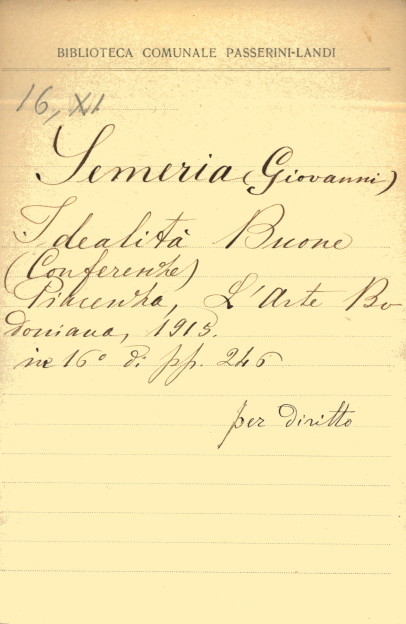 BIBLIOTECA COMUNALE PASSERINI-LANDI
16, XI
Semeria (Giovanni)
Idealità Buone
(Conferenze)
Piacenza, L'Arte Bo
doniana, 1915.
in 16º di pp. 246
per diritto